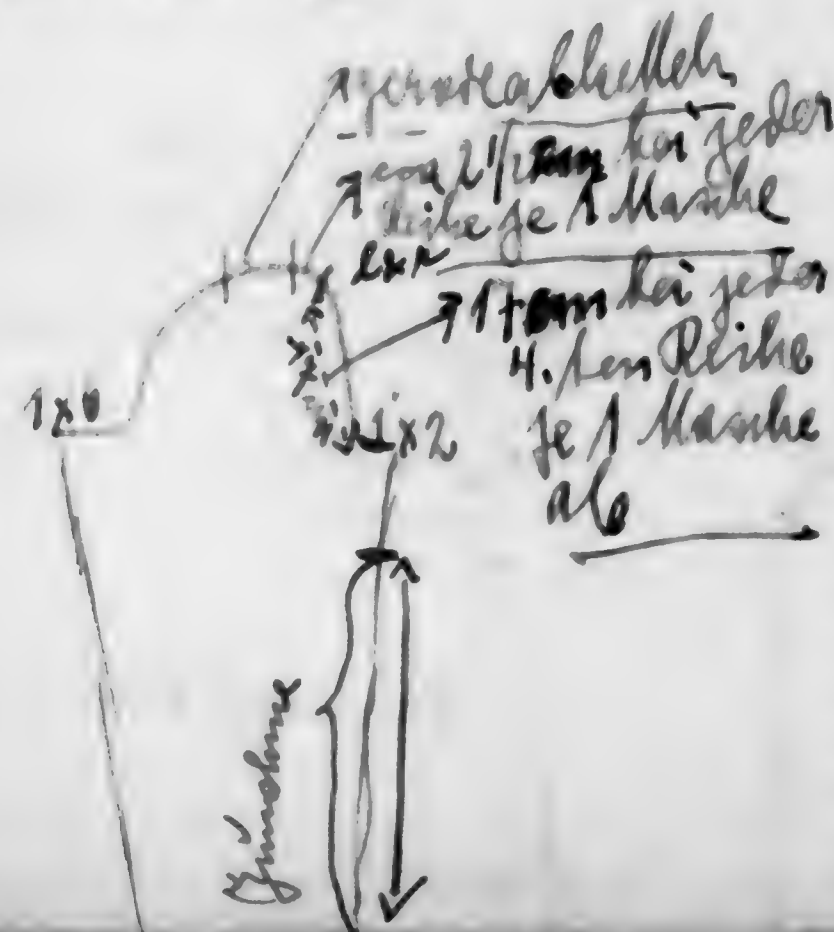 gerade abketteln
ca 2 1/2 cm bei jeder
Reihe je 1 Masche
17 cm bei jeder
4. ten Reihe
je 1 Masche
ab
1x
1x2
Zunahme